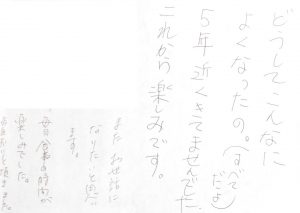 どうしてこんなに
よくなったの。(すべて
だよ)
5年近くきてませんでした。
これから楽しみです。
また お世話に
なりたいと思い
ます。
毎日 食事の時間が
楽しみでした。